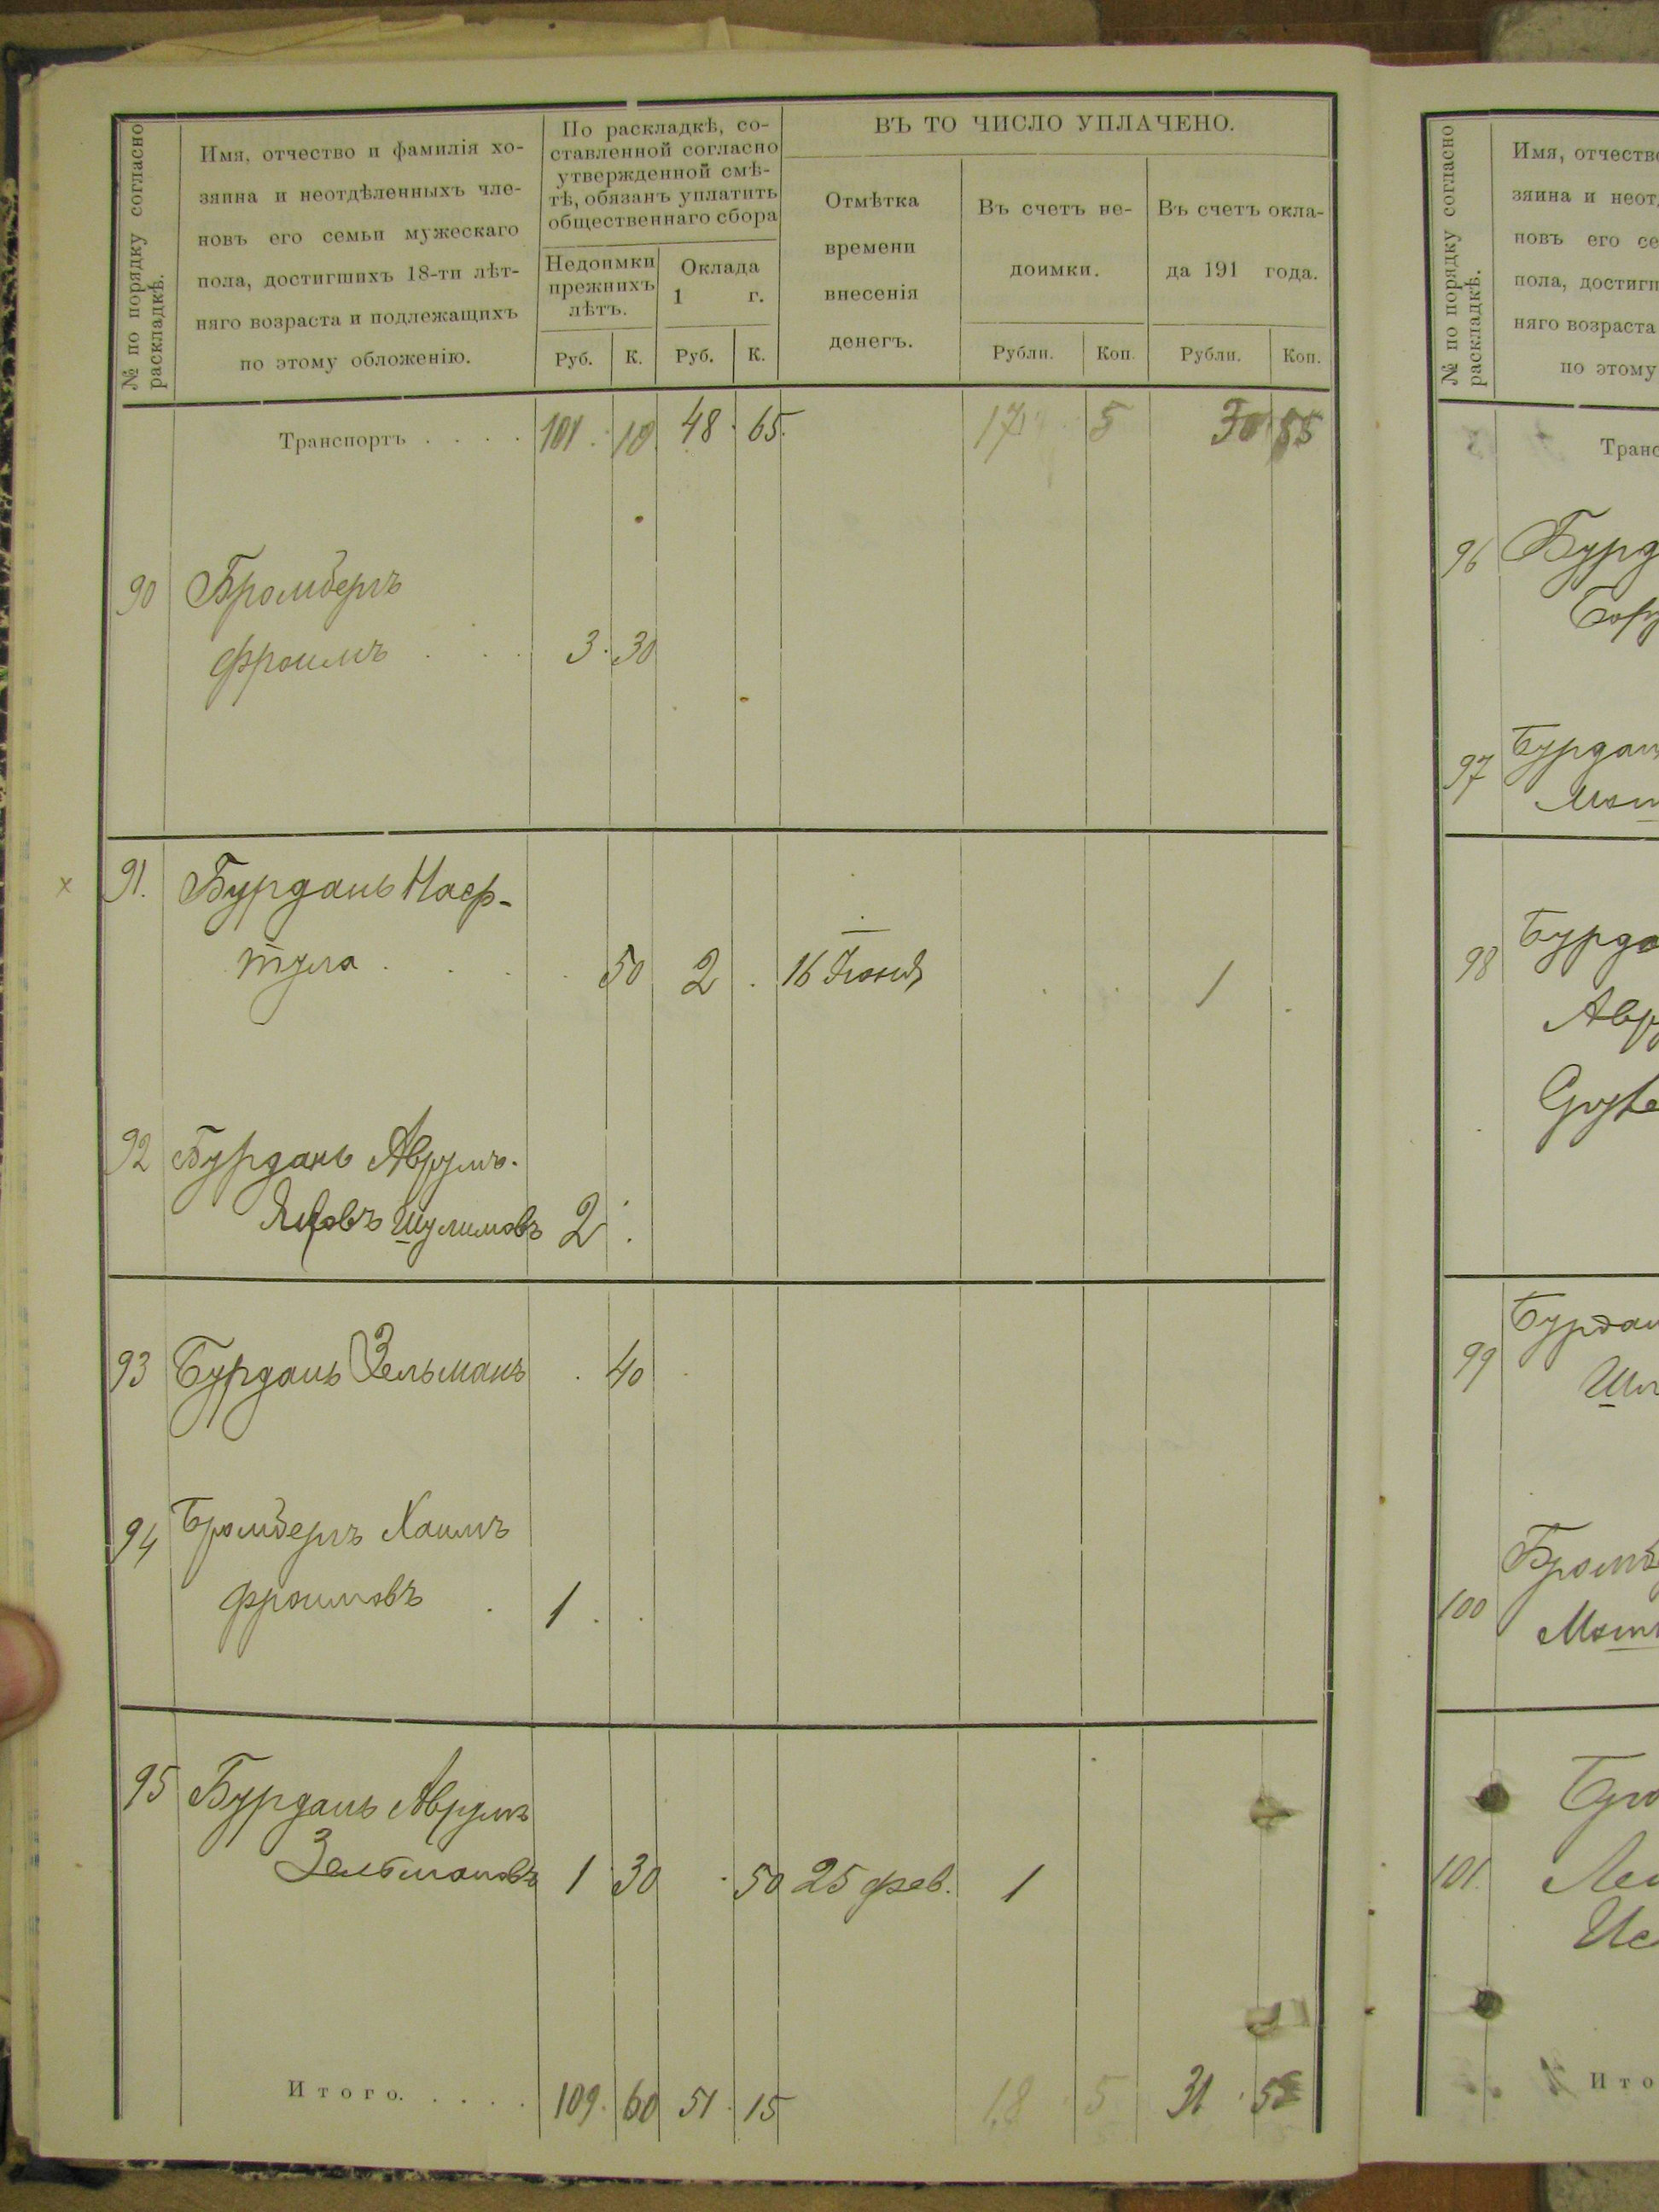 № по порядку согласно
раскладкѣ.
Имя, отчество и фамилія хо-
зяина и неотдѣленныхъ чле-
новъ его семьи мужескаго
пола, достигшихъ 18-ти лѣт-
няго возраста и подлежащихъ
по этому обложенію.
По раскладкѣ, со-
ставленной согласно
утвержденной смѣ-
тѣ, обязанъ уплатить
общественнаго сбора
Недоимки
прежнихъ
лѣтъ.
Оклада
1 г.
Руб. К. Руб. К.
ВЪ ТО ЧИСЛО УПЛАЧЕНО.
Отмѣтка
времени
внесенія
денегъ.
Въ счетъ не-
доимки.
Рубли. Коп.
Въ счетъ окла-
да 191 года.
Рубли. Коп.
Транспортъ . . . . 101 10 48 65 17 5 30
90 Бромбергъ
Фроимъ . . . 3 30
91. Бурданъ Наф-
тула . . . . 50 2 . 16 Іюня 1
92 Бурданъ Аврумъ-
Яковъ Шулимовъ 2
93 Бурданъ Зельманъ 40
94 Бромбергъ Хаимъ
Фроимовъ . 1
95 Бурданъ Аврумъ
Зельмановъ 1 30 50 25 фев. 1
Итого. . . . . 109 60 51 15 18 5 31
№ по порядку согласно
раскладкѣ.
Имя,
зяина и
новъ его
пола,
няго возраста
по этому
96
97
98
99
100
101.